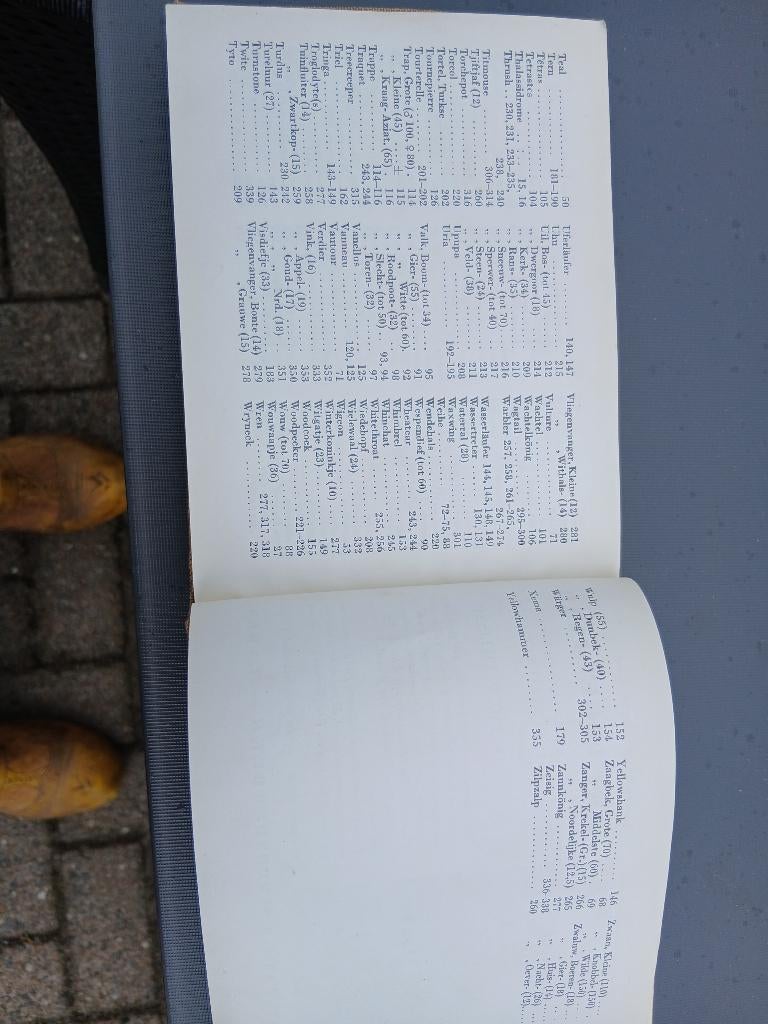 Teal ............ 50
Tern ............ 181–190
Tétras ............ 105
Tetrastes ............ 104
Thalassidrome ...... 15, 16
Thrush .. 230, 231, 233–235,
238, 240
Titmouse ........ 306–314
Tjiftjaf (12) ........ 260
Torchepot ........ 316
Torcol ............ 220
Tortel, Turkse ........ 202
Tournepierre ........ 126
Tourterelle ...... 201–202
Trap, Grote (♂ 100, ♀ 80) . 114
„ , Kleine (45) .... ± 115
„ , Kraag- Aziat. (65) . 116
Trappe ........ 114–116
Traquet ........ 243, 244
Treecreeper ........ 315
Triel ............ 162
Tringa ........ 143–149
Troglodyte(s) ........ 277
Tuinfluiter (14) ...... 258
„ , Zwartkop- (15) 259
Turdus ........ 230–242
Tureluur (27) ........ 143
Turnstone ........ 126
Twite ............ 339
Tyto ............ 209
Uferläufer ........ 140, 147
Uhu ............ 215
Uil, Bos- (tot 45) ...... 212
„ , Dwergoor (18) .... 214
„ , Kerk- (34) ...... 209
„ , Rans- (35) ...... 210
„ , Sneeuw- (tot 70) .. 216
„ , Sperwer- (tot 40) .. 217
„ , Steen- (24) ...... 213
„ , Veld- (38) ...... 211
Upupa ............ 208
Uria ............ 192–195
Valk, Boom- (tot 34) .... 95
„ , Gier- (55) ...... 91
„ „ Witte (tot 60) . 92
„ , Roodpoot- (32) .... 98
„ , Slecht- (tot 50) . 93, 94
„ , Toren- (32) ...... 97
Vanellus .......... 125
Vanneau ........ 120, 125
Vautour .......... 71
Verdier .......... 352
Vink, (16) .......... 333
„ , Appel- (19) ...... 353
„ , Goud- (17) ...... 350
„ „ Nrd. (18) .... 351
Visdiefje (33) ........ 183
Vliegenvanger, Bonte (14) 279
„ , Grauwe (15) 278
Vliegenvanger, Kleine (12) 281
„ , Withals- (14) 280
Vulture .......... 71
Wachtel .......... 101
Wachtelkönig ........ 106
Wagtail ........ 295–300
Warbler 257, 258, 261–265,
267–274
Wasserläufer 144, 145, 148, 149
Wassertreter ...... 130, 131
Waterral (28) ........ 110
Waxwing .......... 301
Weihe ........ 72–75, 88
Wendehals ........ 220
Wespendief (tot 60) .... 90
Wheatear ...... 243, 244
Whimbrel .......... 153
Whinchat .......... 245
Whitethroat ...... 255, 256
Wiedehopf ........ 208
Wielewaal (24) ........ 332
Wigeon .......... 53
Winterkoninkje (10) .... 277
Witgatje (23) ........ 149
Woodcock .......... 155
Woodpecker ...... 221–226
Wouw (tot 70) ........ 88
Wouwaapje (36) ...... 27
Wren ...... 277, 317, 318
Wryneck .......... 220
Wulp (55) .......... 152
„ , Dunbek- (40) .... 154
„ , Regen- (43) ...... 153
Würger ........ 302–305
Xema ............ 179
Yellowhammer ........ 355
Yellowshank ........ 146
Zaagbek, Grote (70) .... 68
„ Middelste (60) .. 69
Zanger, Krekel- (Gr.) (15) 266
„ , Noordelijke (12,5) 265
Zaunkönig ........ 277
Zeisig ........ 336–338
Zilpzalp .......... 260
Zwaan, Kleine (110)
„ , Knobbel- (150)
„ , Wilde (150)
Zwaluw, Boeren- (18)
„ , Gier- (18)
„ , Huis- (14)
„ , Nacht- (26)
„ , Oever- (12)